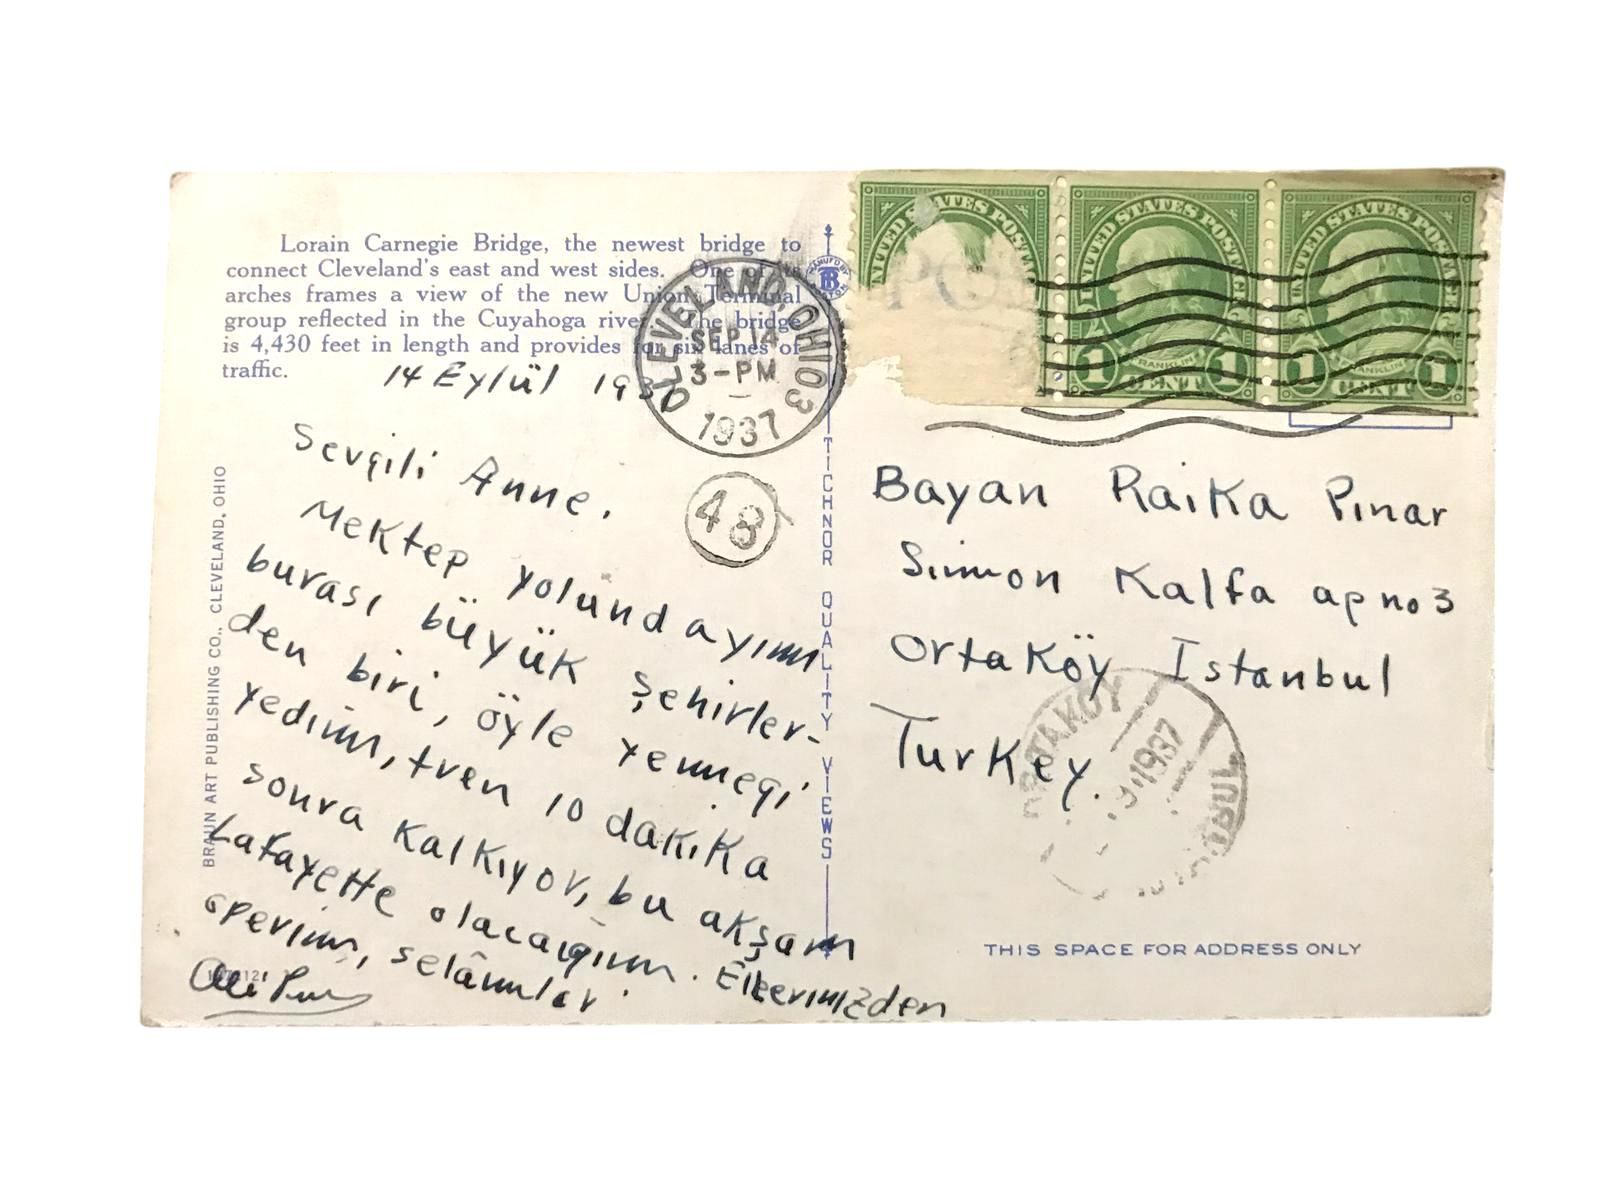 Lorain Carnegie Bridge, the newest bridge to
connect Cleveland's east and west sides. One of its
arches frames a view of the new Union Terminal
group reflected in the Cuyahoga river. The bridge
is 4,430 feet in length and provides for six lanes of
traffic.
14 Eylül 1937
Sevgili Anne.
Mektep yolundayım
burası büyük şehirler-
den biri, öyle yemeği
yedim, tren 10 dakika
sonra kalkıyor, bu akşam
Lafayette olacağım. Ellerinizden
operim, selâmlar.
Ali
CLEVELAND, OHIO 3
SEP 14
3-PM
1937
48
BRAUN ART PUBLISHING CO., CLEVELAND, OHIO
MANUF'D BY
BOSTON
TICHNOR QUALITY VIEWS
UNITED STATES POSTAGE
UNITED STATES POSTAGE
1 FRANKLIN 1
CENT
UNITED STATES POSTAGE
1 FRANKLIN 1
CENT
Bayan Raika Pınar
Simon Kalfa ap no 3
Ortaköy Istanbul
Turkey.
ORTAKÖY
1937
THIS SPACE FOR ADDRESS ONLY